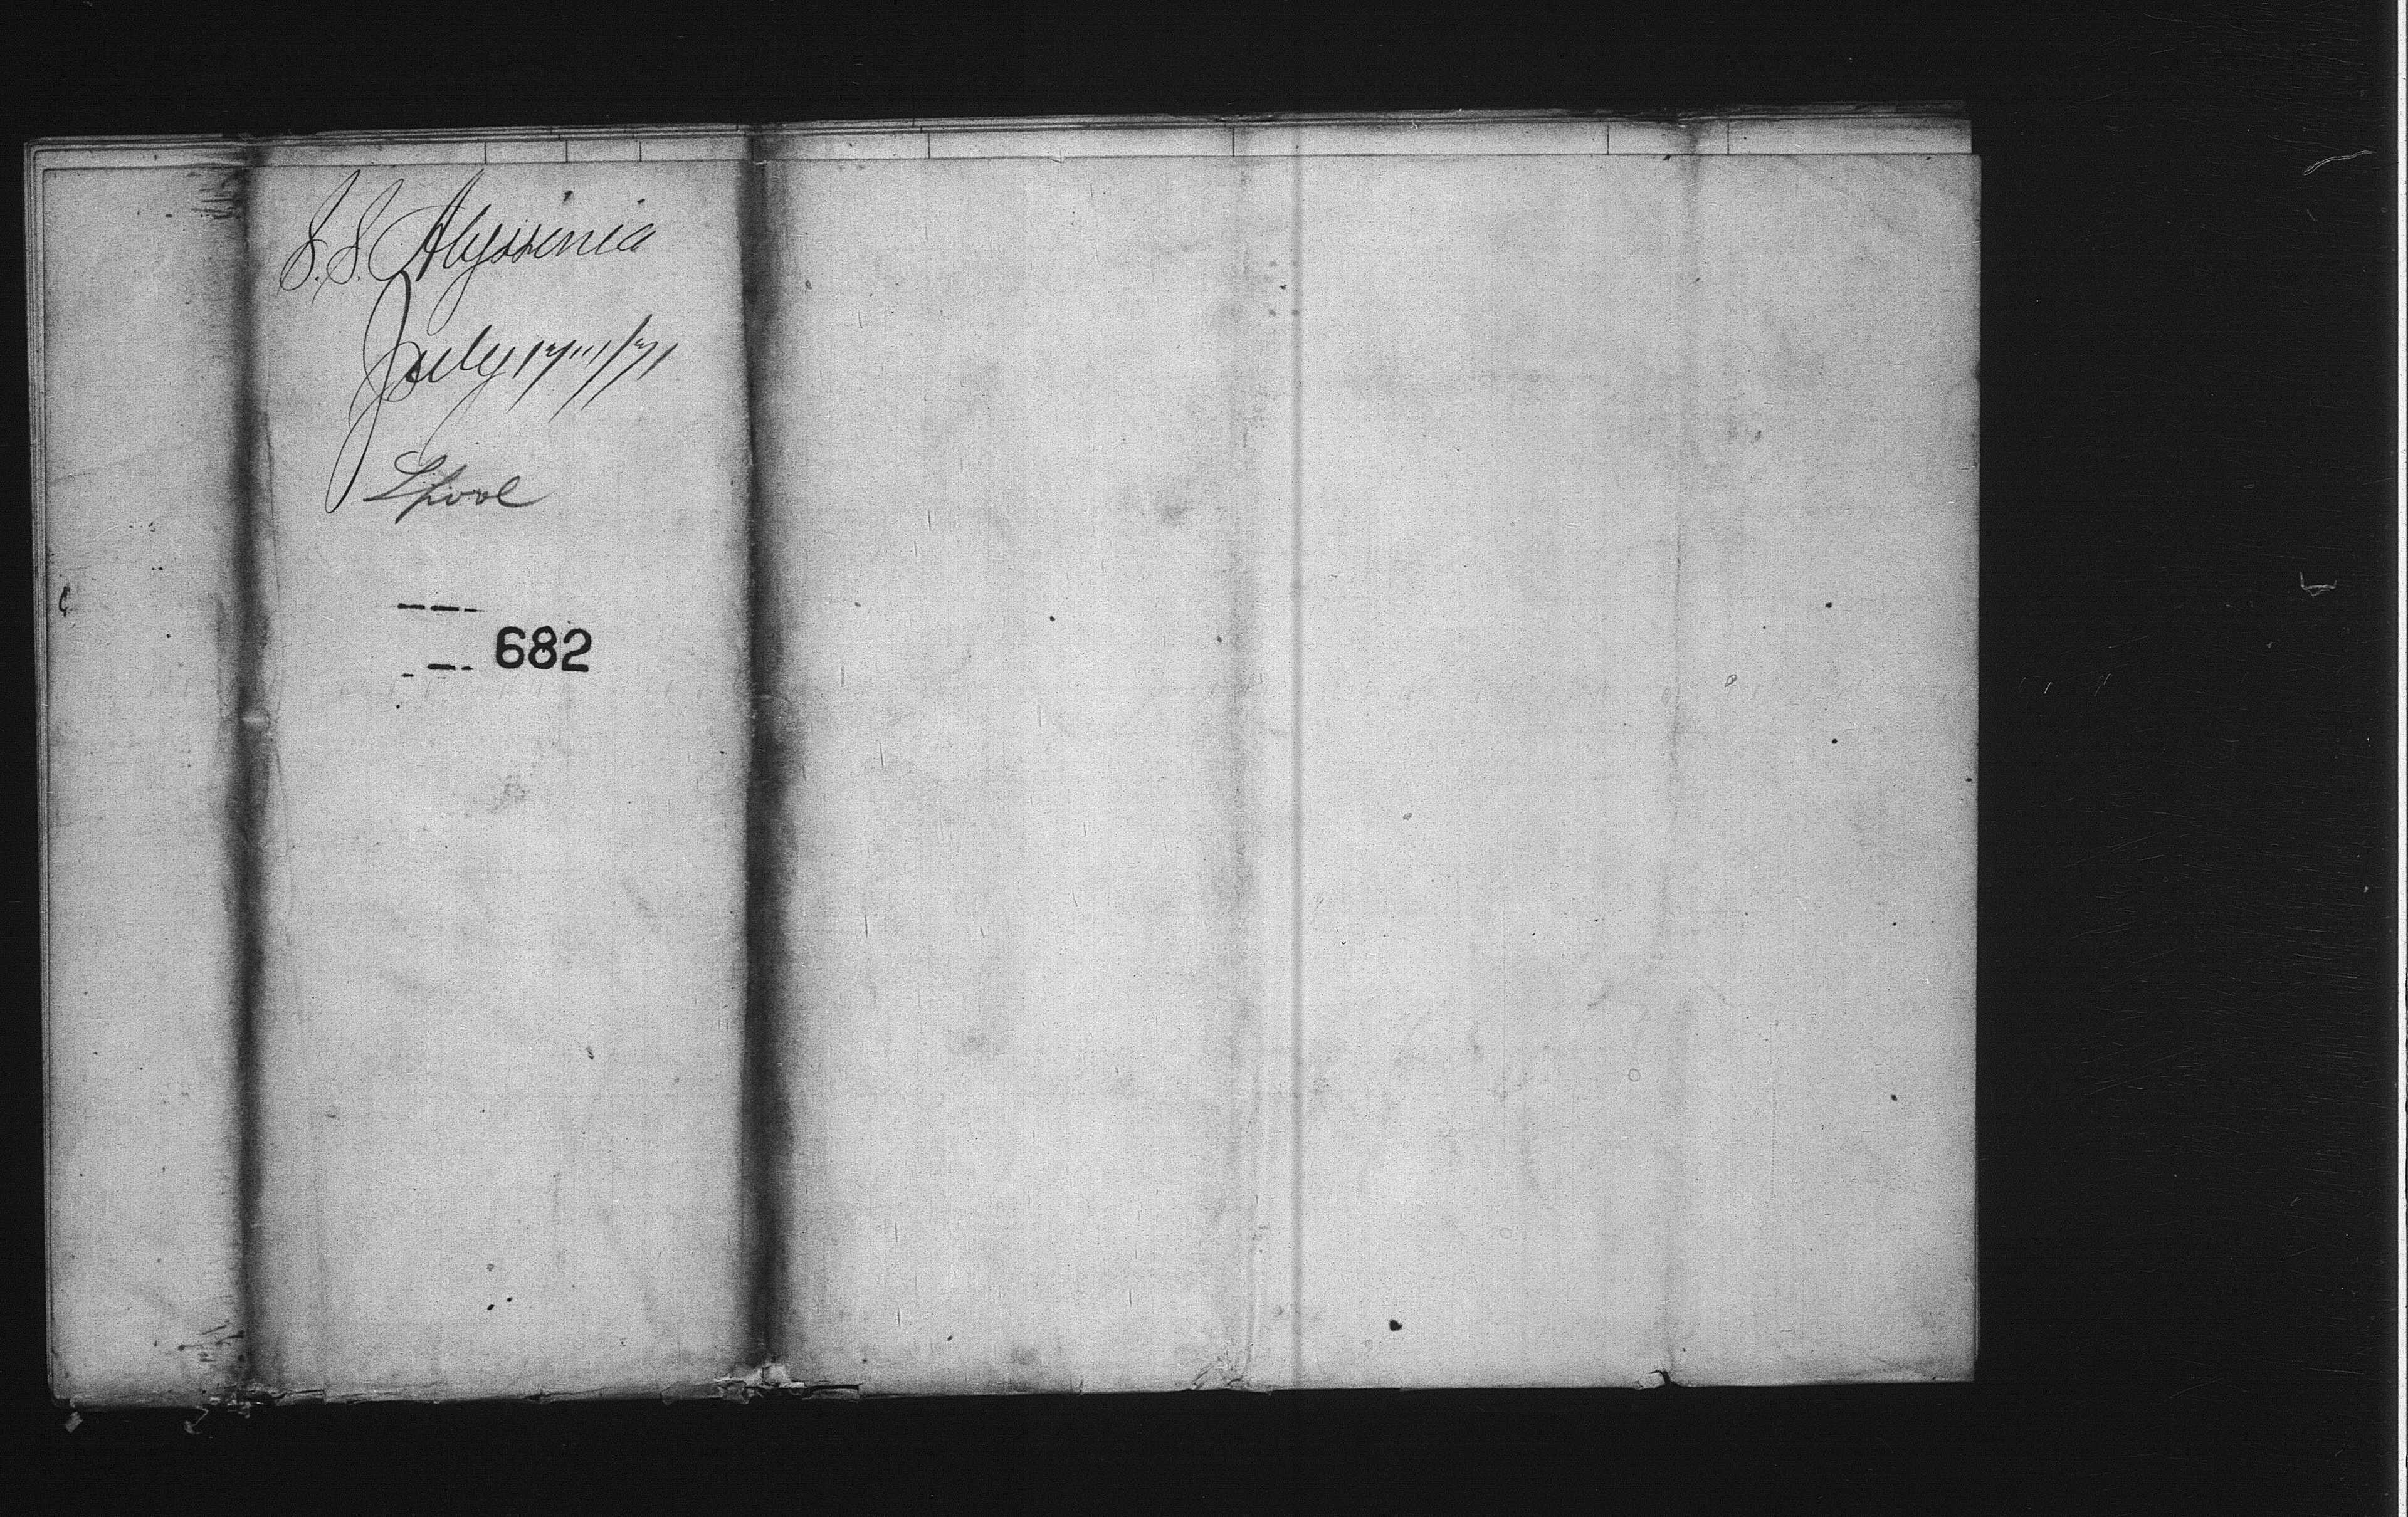 S.S. Abyssinia
July 17"/71
Lpool
682